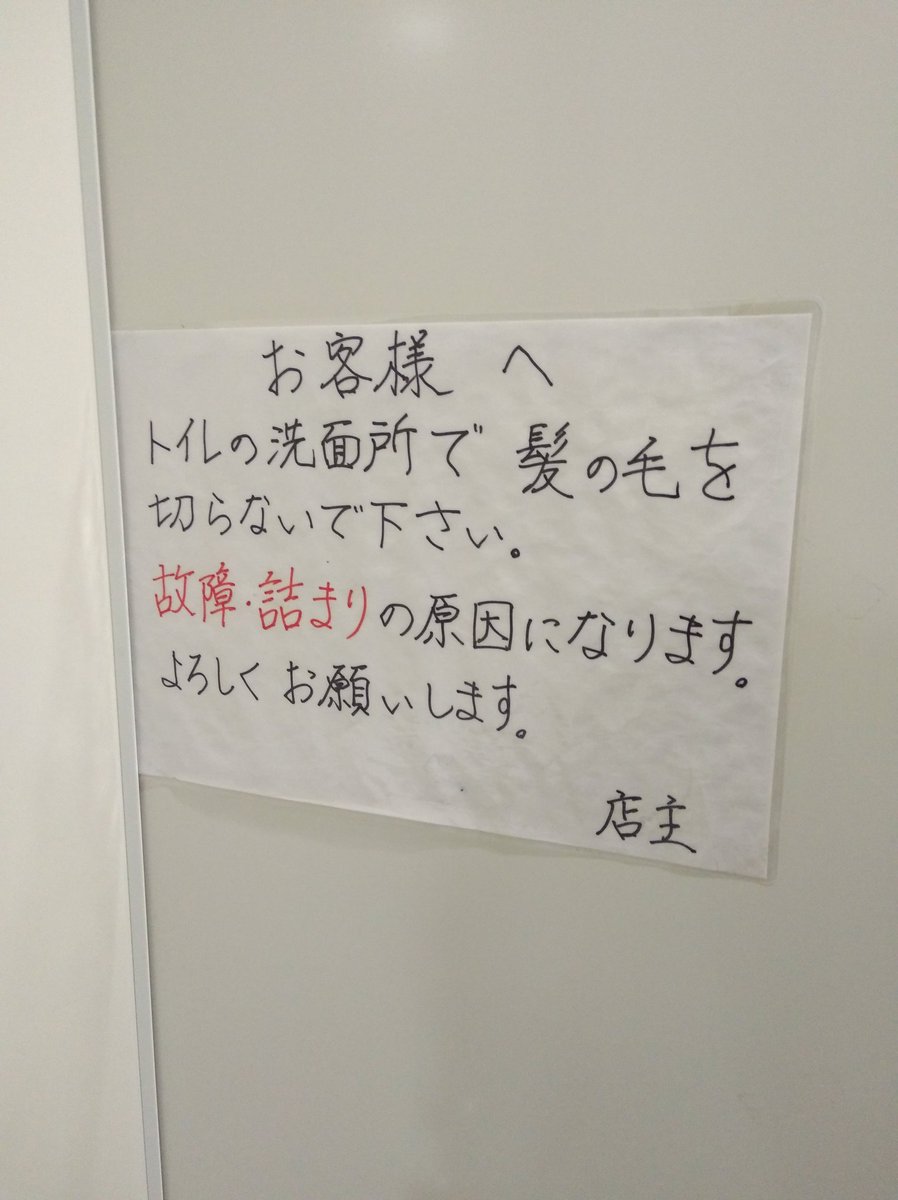 お客様 へ
トイレの洗面所で 髪の毛を
切らないで下さい。
故障・詰まりの原因になります。
よろしく お願いします。
店主